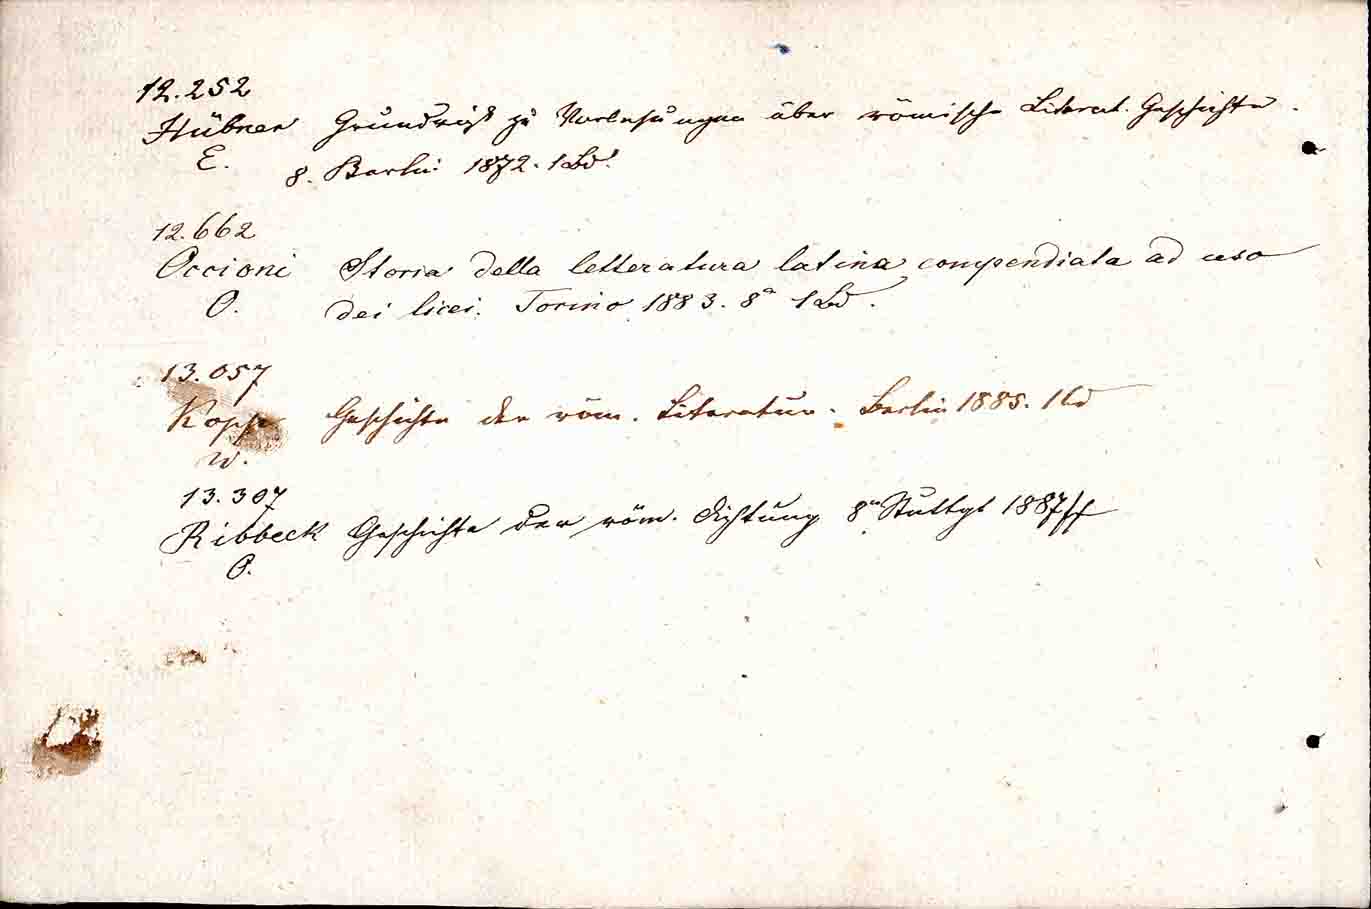 12.252
Hübner Grundriß zu Vorlesungen über römische Literat. Geschichte.
E. 8. Berlin 1872. 1 Bd.
12.662
Occioni Storia della letteratura latina compendiata ad uso
O. dei licei. Torino 1883. 8° 1 Bd.
13.057
Kopp Geschichte der röm. Literatur. Berlin 1885. 1 Bd
W.
13.307
Ribbeck Geschichte der röm. Dichtung 8° Stuttgt 1887/ff
O.